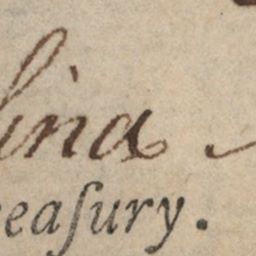 lina
reaſury.